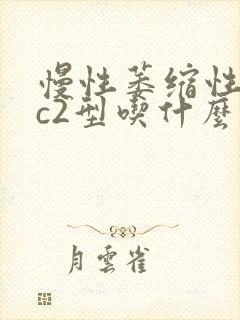 慢性萎缩性
c2型喫什麽
月雲雀